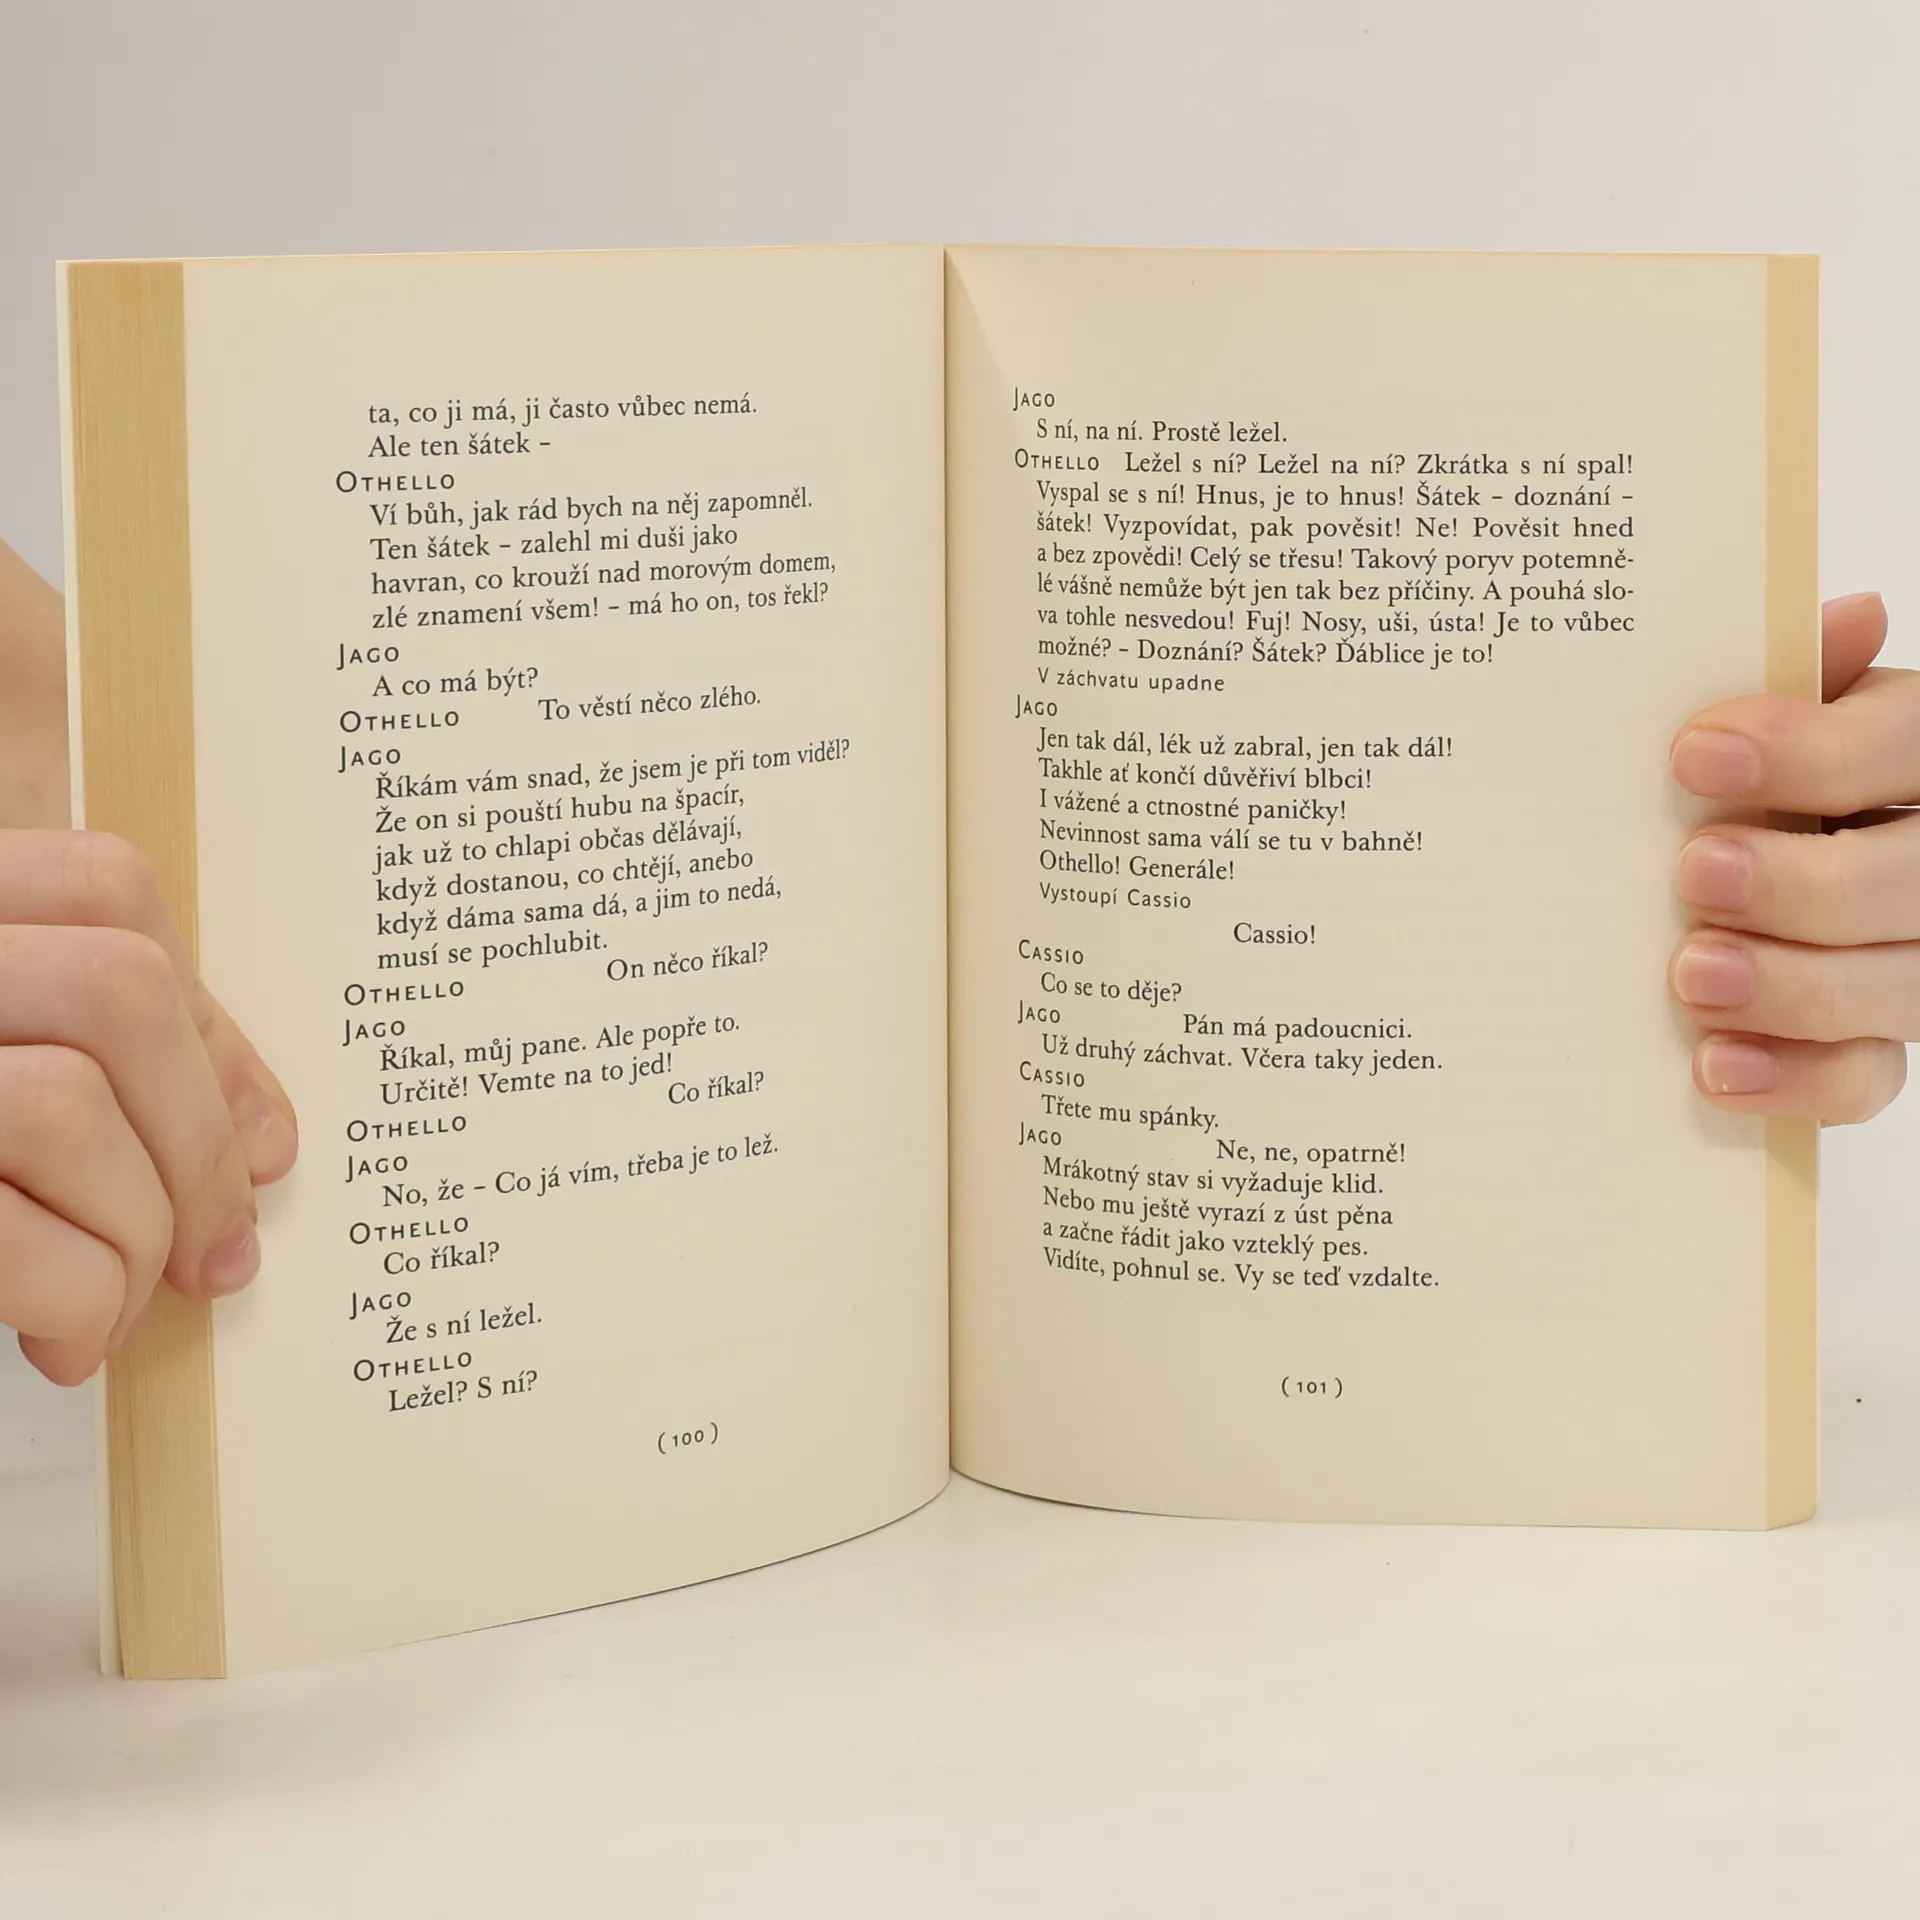 ta, co ji má, ji často vůbec nemá.
Ale ten šátek –
OTHELLO
Ví bůh, jak rád bych na něj zapomněl.
Ten šátek – zalehl mi duši jako
havran, co krouží nad morovým domem,
zlé znamení všem! – má ho on, tos řekl?
JAGO
A co má být?
OTHELLO To věstí něco zlého.
JAGO
Říkám vám snad, že jsem je při tom viděl?
Že on si pouští hubu na špacír,
jak už to chlapi občas dělávají,
když dostanou, co chtějí, anebo
když dáma sama dá, a jim to nedá,
musí se pochlubit.
OTHELLO On něco říkal?
JAGO
Říkal, můj pane. Ale popře to.
Určitě! Vemte na to jed!
OTHELLO Co říkal?
JAGO
No, že – Co já vím, třeba je to lež.
OTHELLO
Co říkal?
JAGO
Že s ní ležel.
OTHELLO
Ležel? S ní?
( 100 )
JAGO
S ní, na ní. Prostě ležel.
OTHELLO Ležel s ní? Ležel na ní? Zkrátka s ní spal!
Vyspal se s ní! Hnus, je to hnus! Šátek – doznání –
šátek! Vyzpovídat, pak pověsit! Ne! Pověsit hned
a bez zpovědi! Celý se třesu! Takový poryv potemně-
lé vášně nemůže být jen tak bez příčiny. A pouhá slo-
va tohle nesvedou! Fuj! Nosy, uši, ústa! Je to vůbec
možné? – Doznání? Šátek? Ďáblice je to!
V záchvatu upadne
JAGO
Jen tak dál, lék už zabral, jen tak dál!
Takhle ať končí důvěřiví blbci!
I vážené a ctnostné paničky!
Nevinnost sama válí se tu v bahně!
Othello! Generále!
Vystoupí Cassio
Cassio!
CASSIO
Co se to děje?
JAGO Pán má padoucnici.
Už druhý záchvat. Včera taky jeden.
CASSIO
Třete mu spánky.
JAGO Ne, ne, opatrně!
Mrákotný stav si vyžaduje klid.
Nebo mu ještě vyrazí z úst pěna
a začne řádit jako vzteklý pes.
Vidíte, pohnul se. Vy se teď vzdalte.
( 101 )